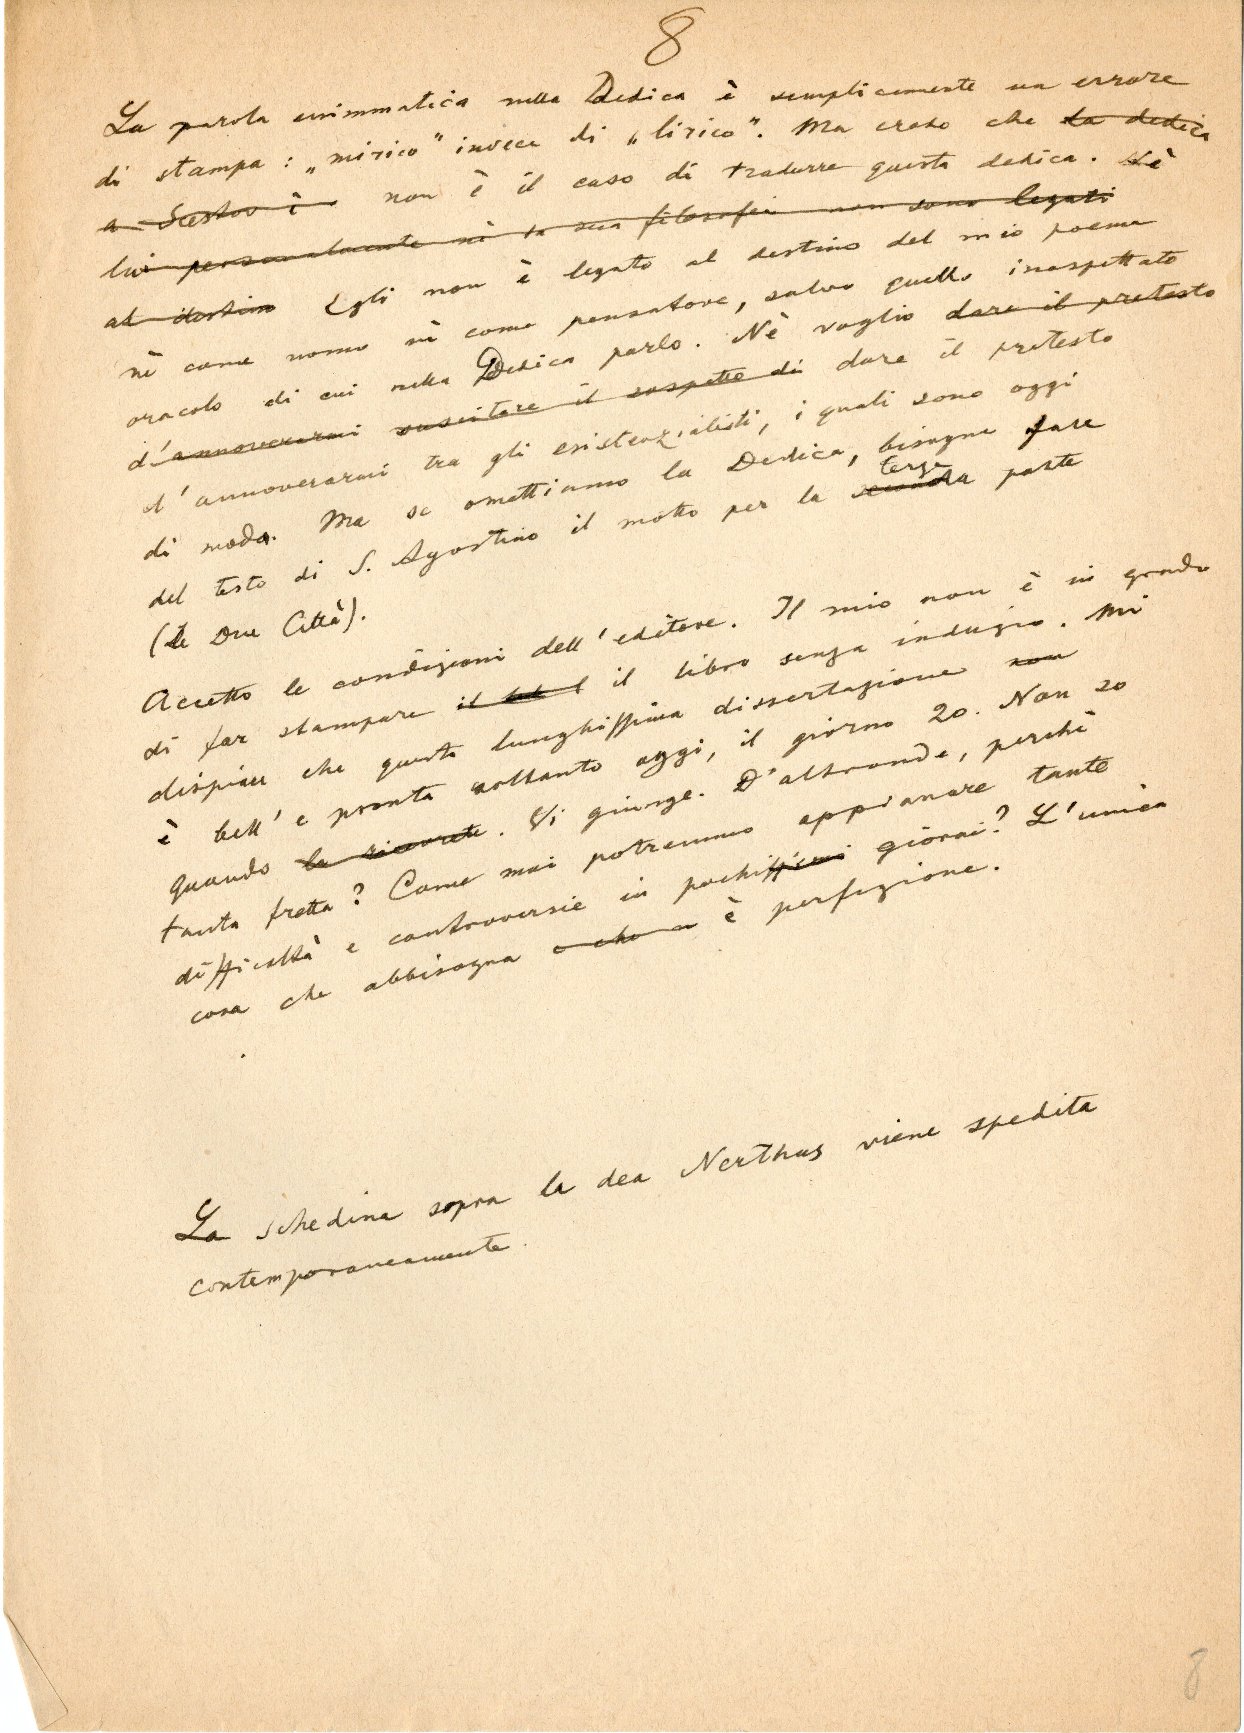 8
La parola enimmatica nella Dedica è semplicemente un errore
di stampa: „mirico” invece di „lirico”. Ma credo che la dedica
a Scestov è non è il caso di tradurre questa dedica. Nè
lui personalmente nè la sua filosofia non sono legati
al destino Egli non è legato al destino del mio poema
nè come uomo nè come pensatore, salvo quello inaspettato
oracolo di cui nella Dedica parlo. Nè voglio dare il pretesto
d'annoverarmi suscitare il sospetto di dare il pretesto
d'annoverarmi tra gli esistenzialisti, i quali sono oggi
di moda. Ma se omettiamo la Dedica, bisogna fare
terza
del testo di S. Agostino il motto per la seconda parte
(Le Due Città).
Accetto le condizioni dell'editore. Il mio non è in grado
di far stampare il il libro senza indugio. Mi
dispiace che questa lunghissima dissertazione non
è bell'e pronta soltanto oggi, il giorno 20. Non so
quando la riceverete. Vi giunge. D'altronde, perchè
tanta fretta? Come mai potremmo appianare tante
difficoltà e controversie in pochissimi giorni? L'unica
cosa che abbisogna e che è perfezione.
La schedina sopra la dea Nerthus viene spedita
contemporaneamente.
8